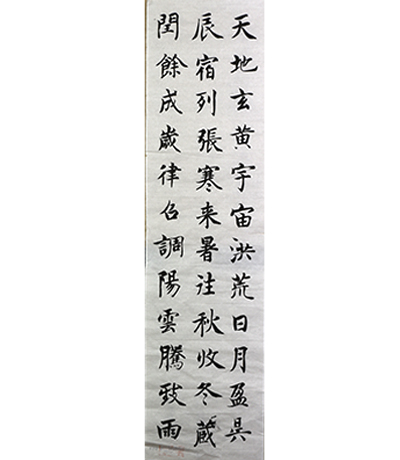 天地玄黄宇宙洪荒日月盈昃
辰宿列張寒来暑往秋收冬藏
閏餘成歲律召調陽雲騰致雨